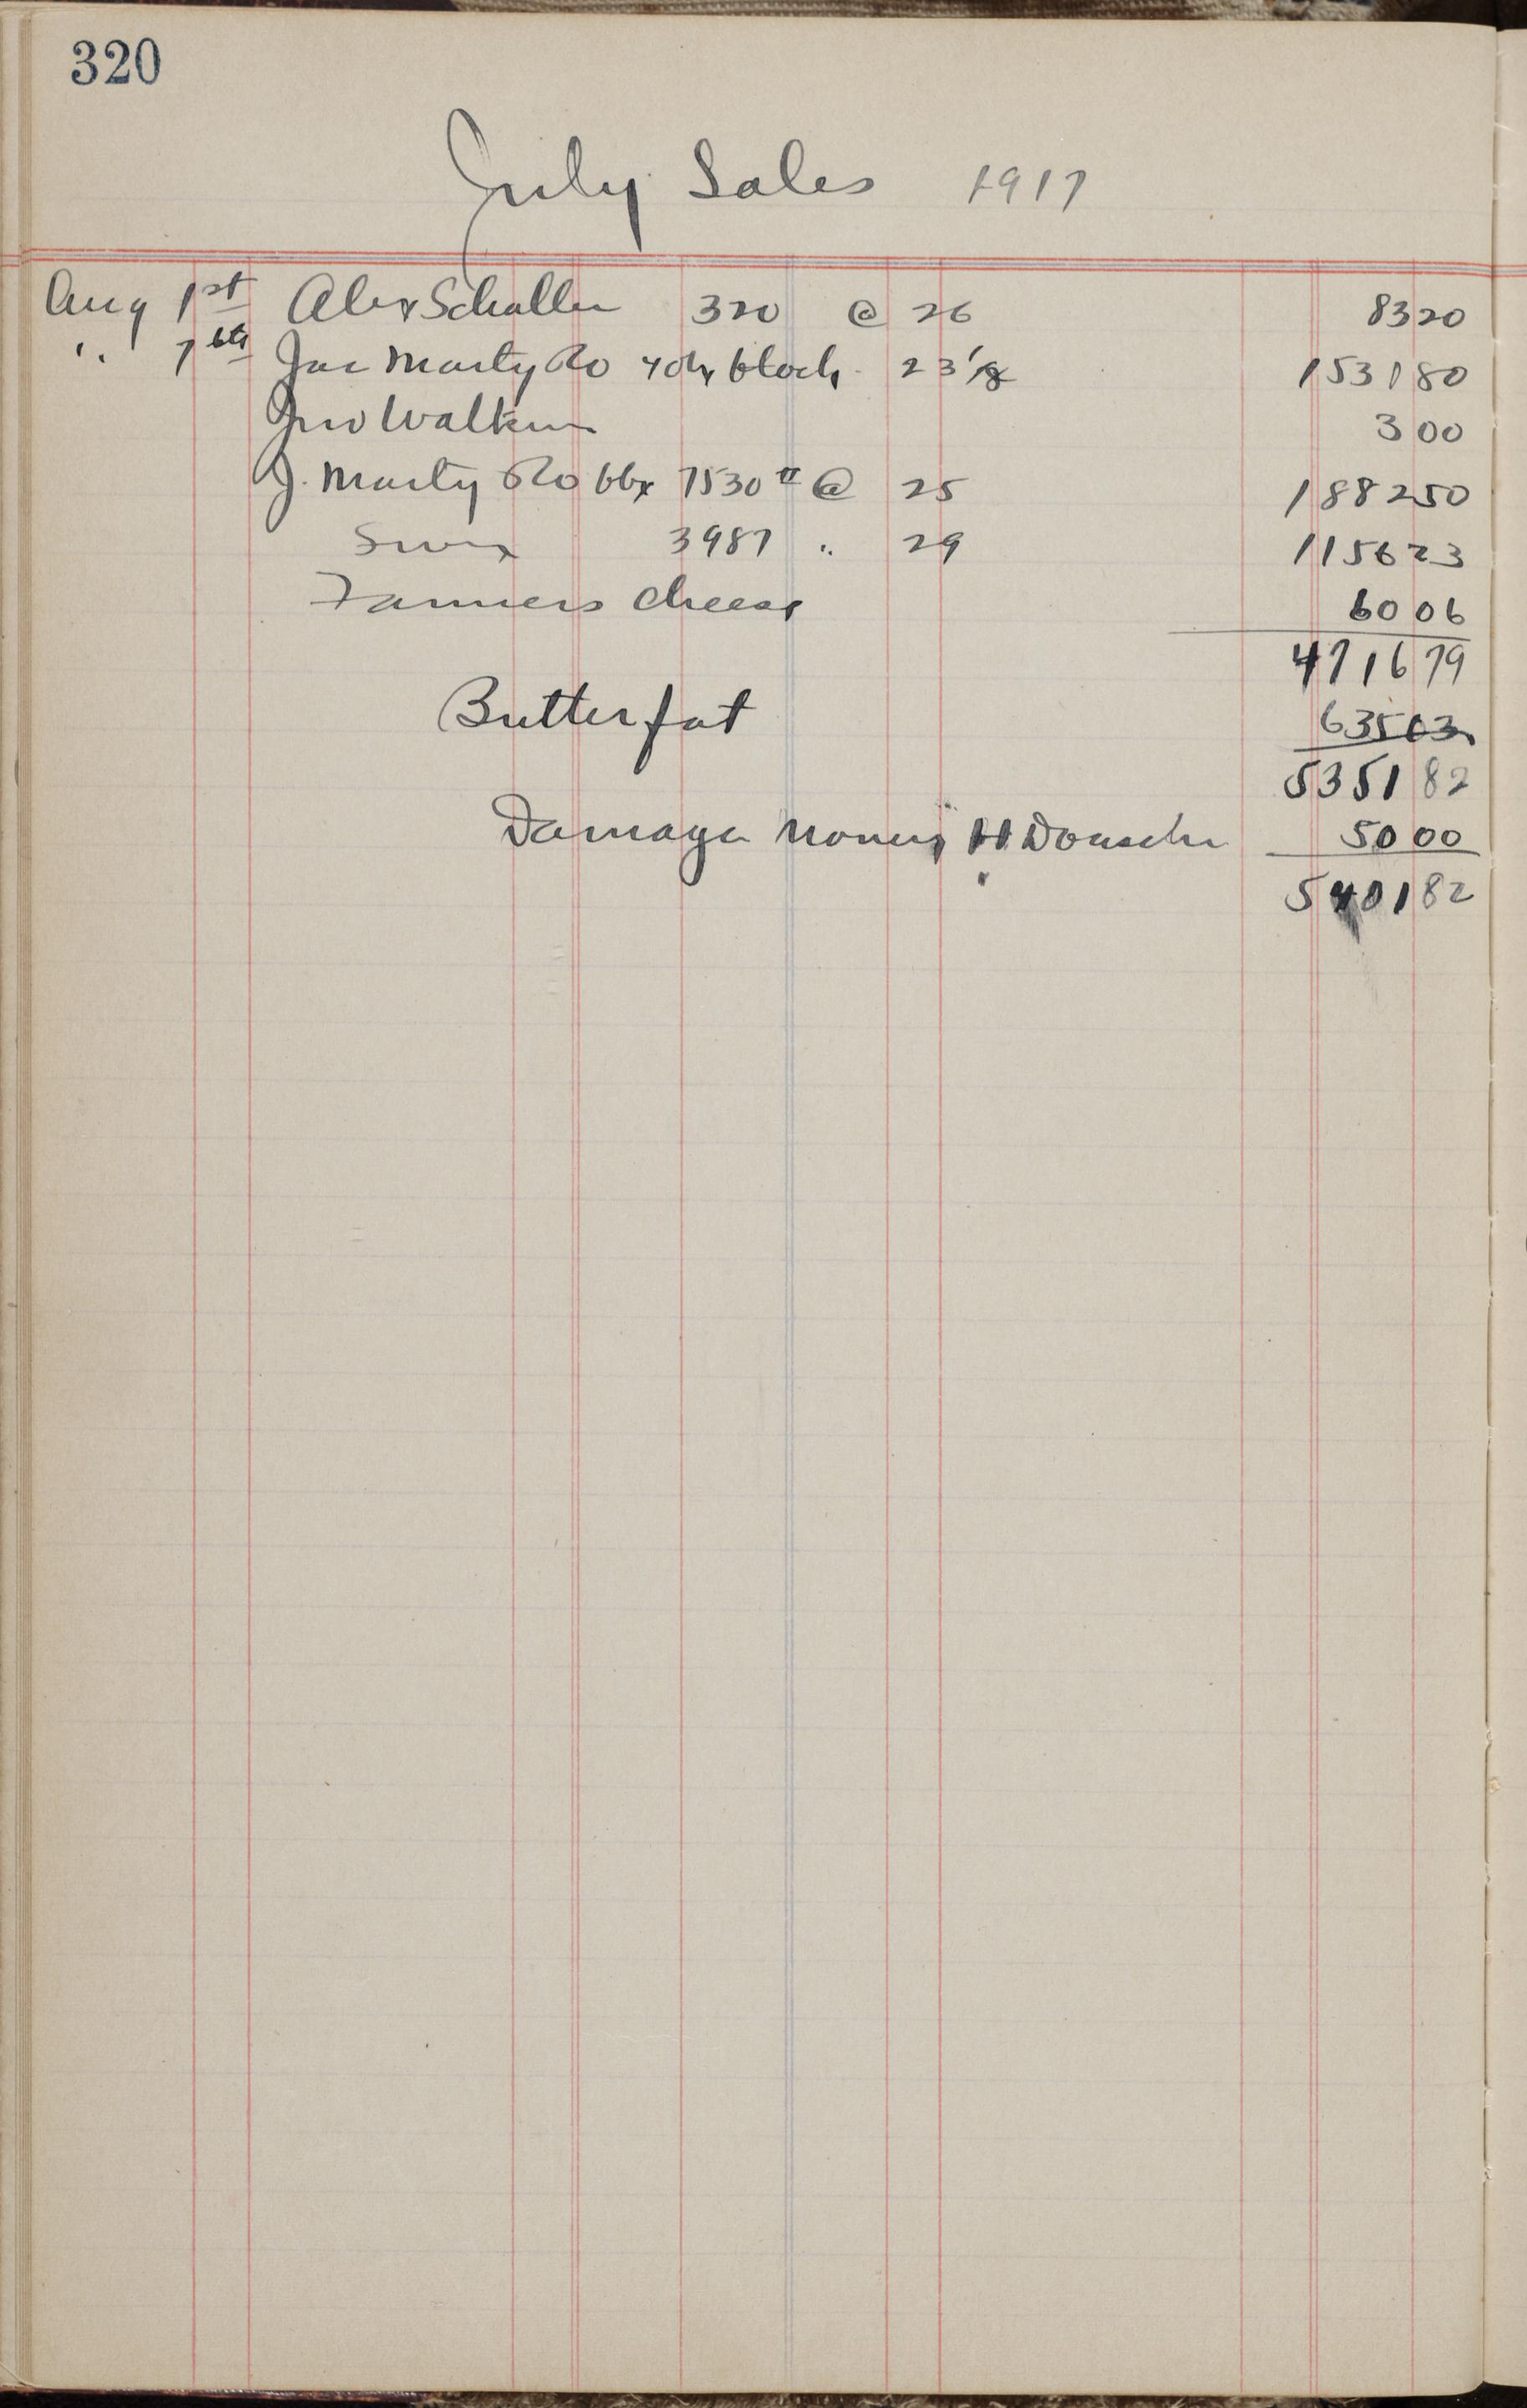 320
July Sales 1917
Aug 1st Alex Schaller 320 @ 26 8320
" 7th Jac Marty Co 70 bx block 23 1/2 153180
Jno Walkin 300
J. Marty Co 66x 7530 # @ 25 188250
Swiss 3987 " 29 115623
Farmers cheese 6006
471679
Butter fat 63503
535182
Damage money H 5000
540182